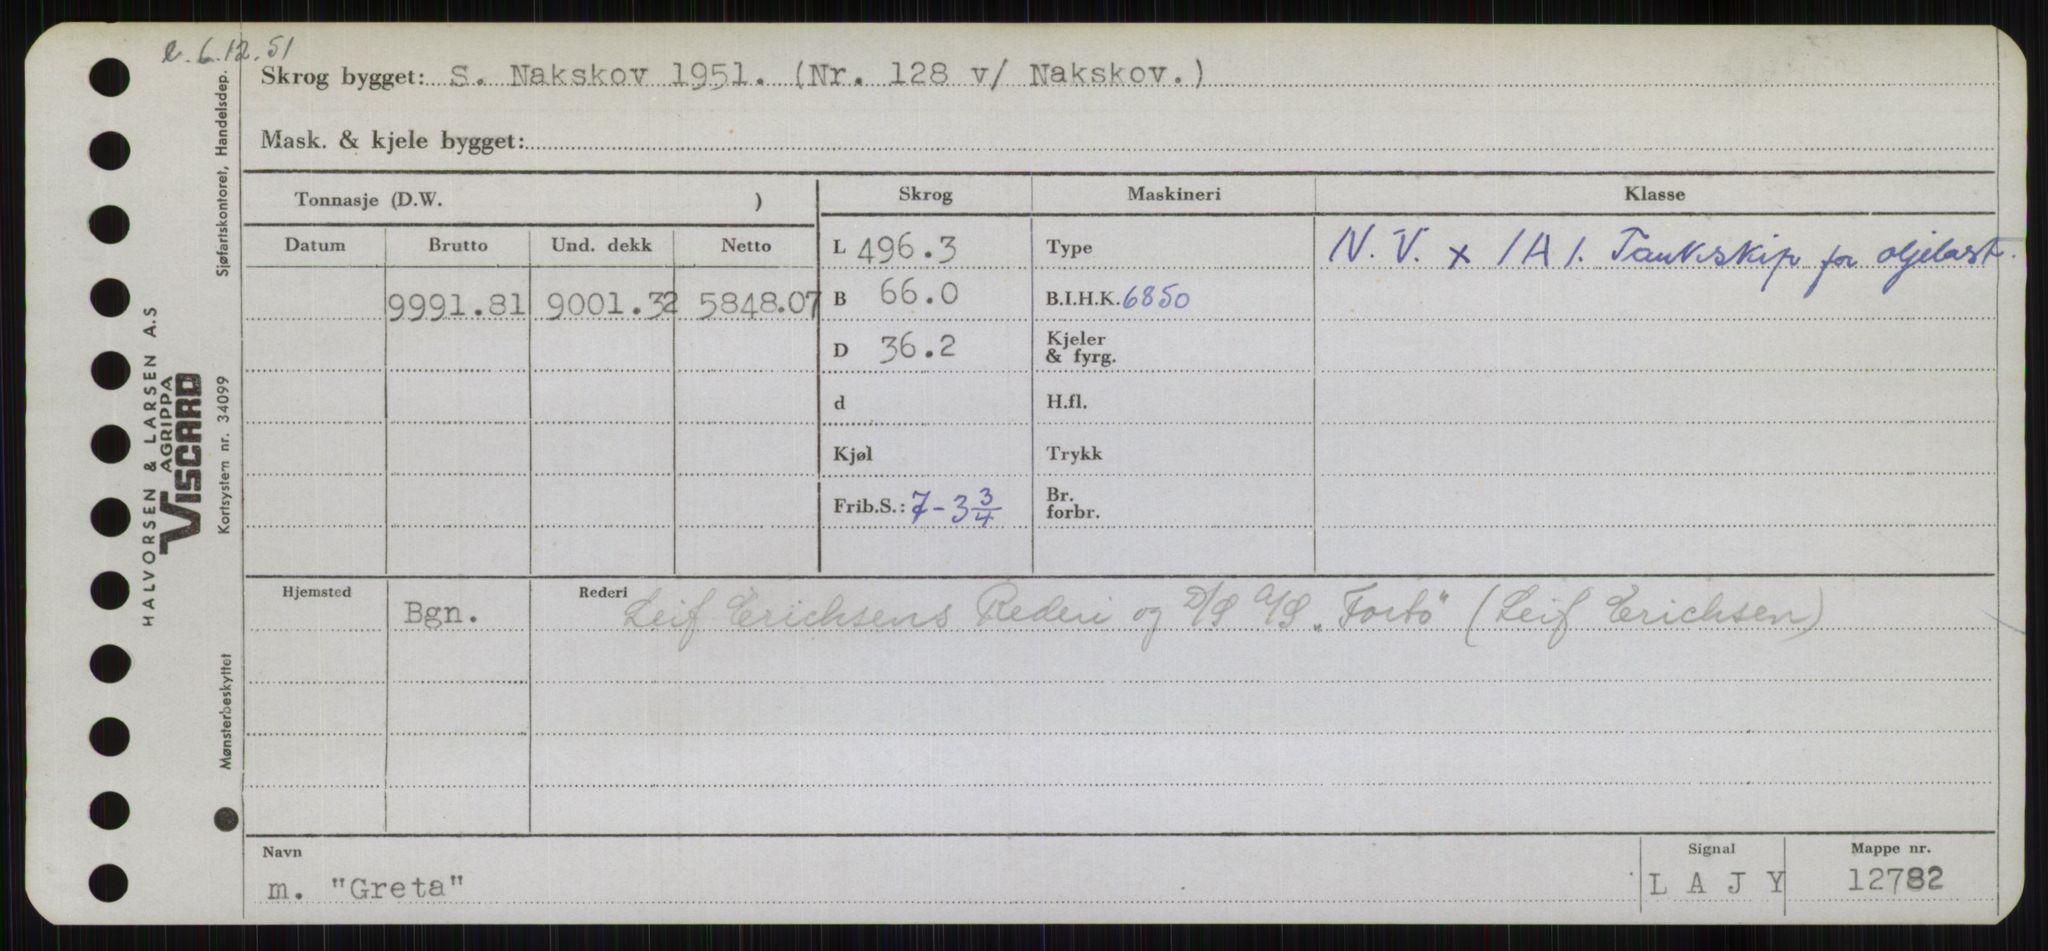 e. 6.12.51
Skrog bygget: S. Nakskov 1951. (Nr. 128 v/ Nakskov.)
Mask. & kjele bygget:
Tonnasje (D.W. )
Skrog
Maskineri
Klasse
Datum
Brutto
Und. dekk
Netto
L 496.3
Type
N. V. x 1A1. Tankskip for oljelast.
9991.81
9001.32
5848.07
B 66.0
B.I.H.K. 6850
D 36.2
Kjeler
& fyrg.
d
H.fl.
Kjøl
Trykk
Frib.S.: 7-3 3/4
Br.
forbr.
Hjemsted
Bgn.
Rederi
Leif Erichsens Rederi og D/S A/S "Fortö" (Leif Erichsen)
Navn
m. "Greta"
Signal
L A J Y
Mappe nr.
12782
HALVORSEN & LARSEN A.S
AGRIPPA
VISCARD
Sjøfartskontoret, Handelsdep.
Kortsystem nr. 34099
Mønsterbeskyttet